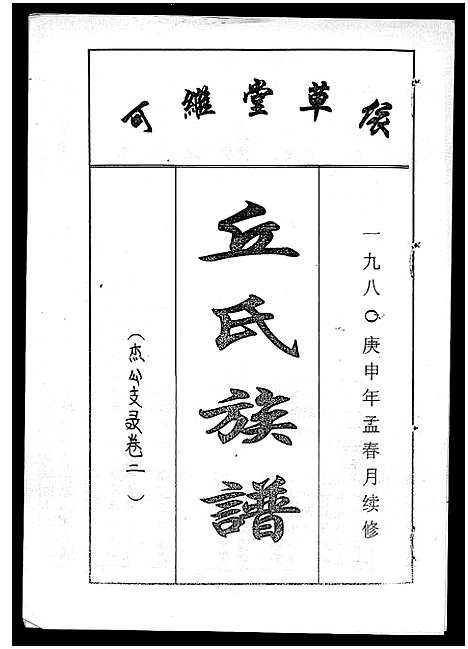 草堂維
一九八〇庚申年孟春月续修
丘氏族譜
（杰公支录卷二 ）